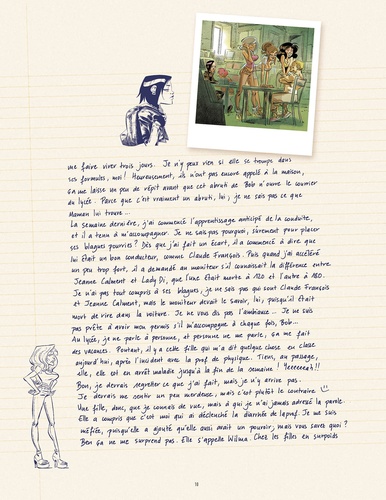 me faire virer trois jours. Je n'y peux rien si elle se trompe dans
ses formules, moi ! Heureusement, ils n'ont pas encore appelé à la maison,
ça me laisse un peu de répit avant que cet abruti de Bob n'ouvre le courrier
du lycée. Parce que c'est vraiment un abruti, lui, je ne sais pas ce que
Maman lui trouve...
La semaine dernière, j'ai commencé l'apprentissage anticipé de la conduite,
et il a tenu à m'accompagner. Je ne sais pas pourquoi, sûrement pour placer
ses blagues pourries ? Dès que j'ai fait un écart, il a commencé à dire que
lui était un bon conducteur, comme Claude François. Puis quand j'ai accéléré
un peu trop fort, il a demandé au moniteur s'il connaissait la différence entre
Jeanne Calment et Lady Di, que l'une était morte à 120 et l'autre à 180.
Je n'ai pas tout compris à ses blagues, je ne sais pas qui sont Claude François
et Jeanne Calment, mais le moniteur devait le savoir, lui, puisqu'il était
mort de rire dans la voiture. Je ne vous dis pas l'ambiance... Je ne suis
pas prête d'avoir mon permis s'il m'accompagne à chaque fois, Bob...
Au lycée, je ne parle à personne, et personne ne me parle, ça me fait
des vacances. Pourtant, il y a cette fille qui m'a dit quelque chose en classe
aujourd'hui, après l'incident avec la prof de physique. Tiens, au passage,
elle, elle est en arrêt maladie jusqu'à la fin de la semaine !
Bon, je devrais regretter ce que j'ai fait, mais je n'y arrive pas.
Je devrais me sentir un peu merdeuse, mais c'est plutôt le contraire
Une fille, donc, que je connais de vue, mais à qui je n'ai jamais adressé la parole.
Elle a compris que c'est moi qui ai déclenché la diarrhée de la prof. Je me suis
méfiée, puisqu'elle a ajouté qu'elle aussi avait un pouvoir, mais vous savez quoi ?
Ben ça ne me surprend pas. Elle s'appelle Wilma. Chez les filles en surpoids
10